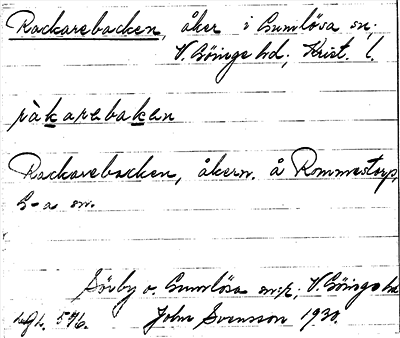 Rackarebacken, åker i Gumlösa sn;
V. Göinge hd; Krist. l.
ràkarebakan
Rackarebacken, åkern. å Rommestorp,
G-a sn.
Sörby o. Gumlösa sn:r, V. Göinge hd
hgl. 576. John Svensson 1930.